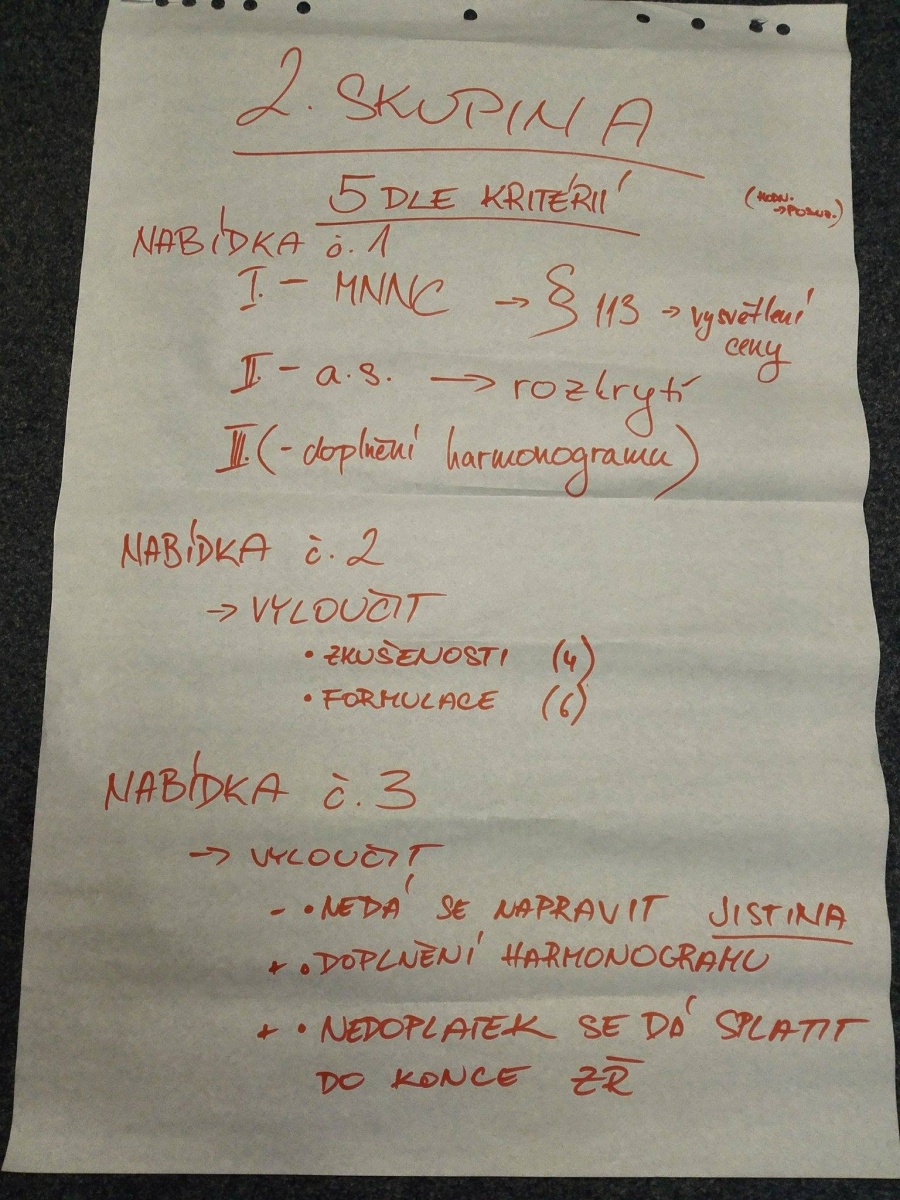 2. SKUPINA
5 DLE KRITÉRIÍ
(HODN.
→ POSOUZ.)
NABÍDKA č. 1
I. - MNNC → § 113 → vysvětlení
ceny
II - a.s. → rozkrytí
III. (- doplnění harmonogramu)
NABÍDKA č. 2
→ VYLOUČIT
• ZKUŠENOSTI (4)
• FORMULACE (6)
NABÍDKA č. 3
→ VYLOUČIT
- • NEDÁ SE NAPRAVIT JISTINA
+ • DOPLNĚNÍ HARMONOGRAMU
+ • NEDOPLATEK SE DÁ SPLATIT
DO KONCE ZŘ